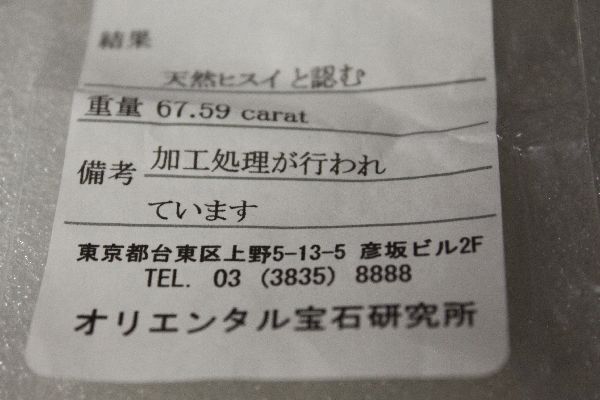 結果
天然ヒスイと認む
重量 67.59 carat
備考 加工処理が行われ
ています
東京都台東区上野5-13-5 彦坂ビル2F
TEL. 03 (3835) 8888
オリエンタル宝石研究所